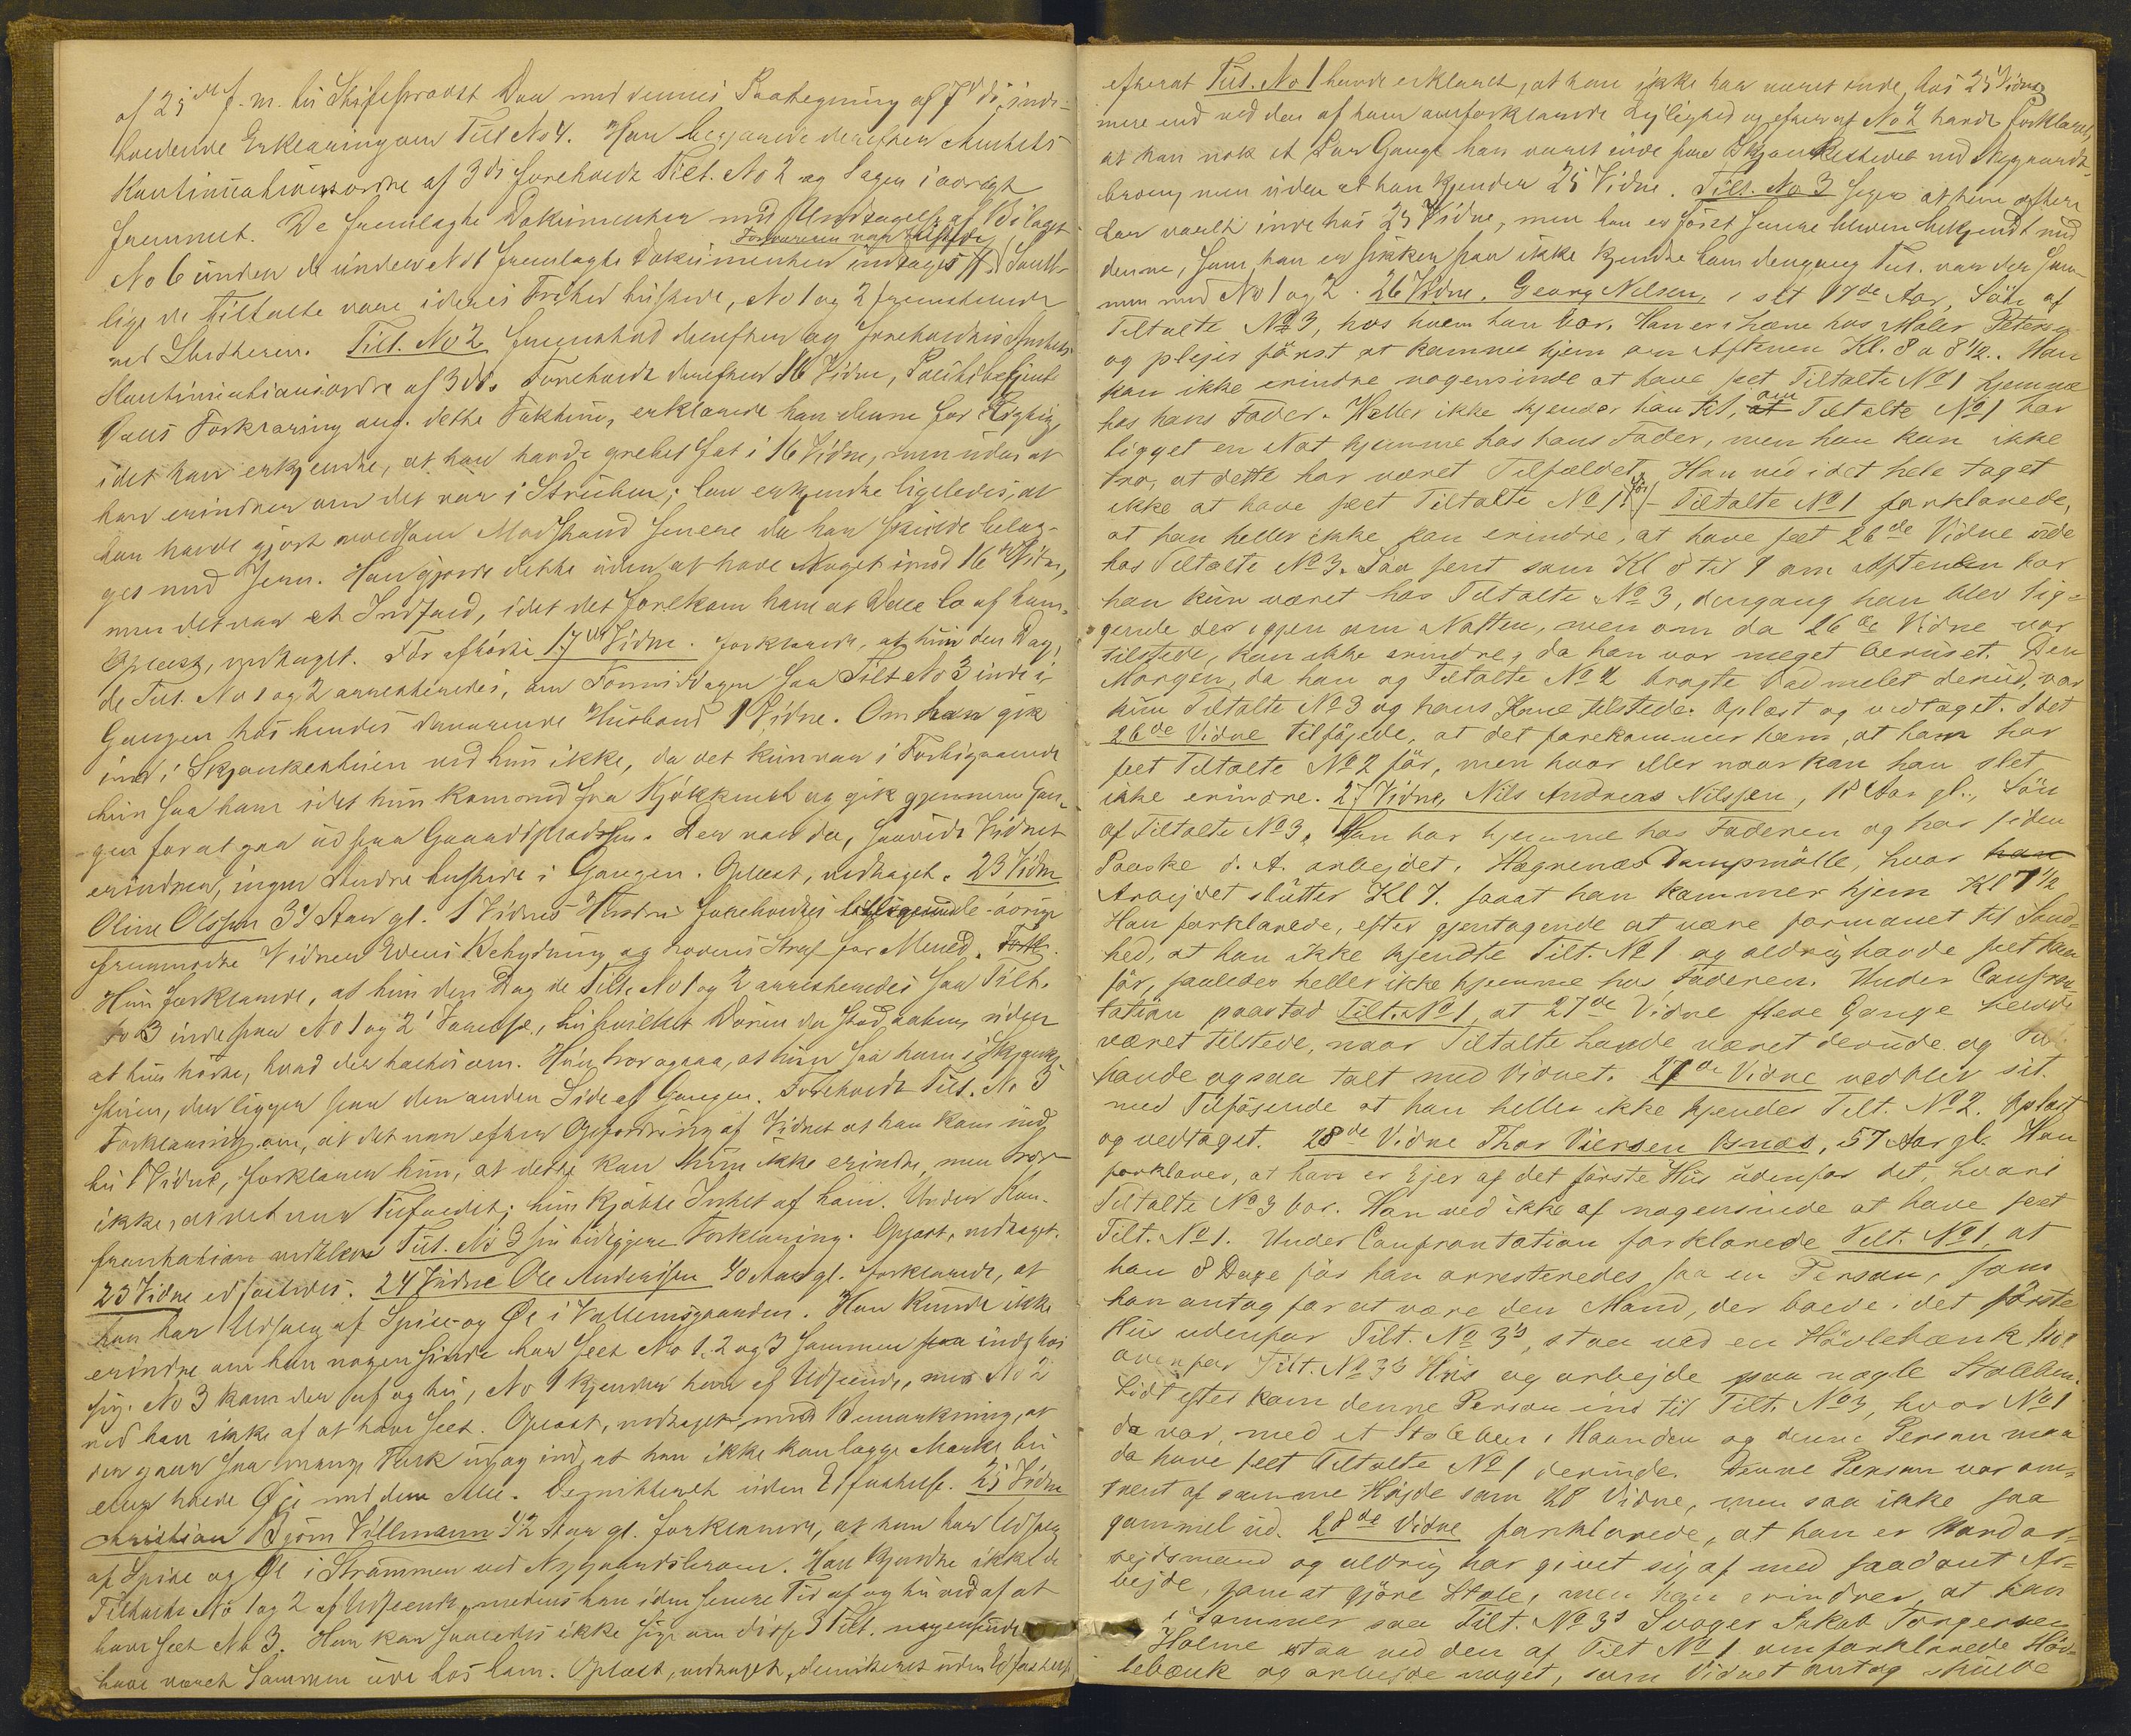 af 25de f. m. til Stiftsprovst Daa med dennes Paategning af 7de ds., inde-
holdende Erklæring om Tilt No 4. Han begjærede derefter Amtets
Kontinuationsordre af 3die foreholdt Tilt. No 2 og Sagen i øvrigt
fremmet. De fremlagte Dokumenter med Undtagelse af Bilaget
Forsvareren var tilstede
No 6 under de under No 1 fremlagte Dokumenter indtages. Samt-
lige de tiltalte vare i deres Frihed tilstede, No 1 og 2 fremstillede
ved Slutteren. Tilt. No 2 fremstod derefter og foreholdtes Amtets
Kontinuationsordre af 3 ds. Foreholdt derefter 16 Vidne, Politibetjent
Forklaring ang. dette Faktum, erklærede han denne for Rigtig,
idet han erkjendte, at han havde grebet fat i 16 Vidne, men uden at
han erindrer om det var i Struben; han erkjendte ligeledes, at
han havde gjort voldsom Modstand senere da han skulde belæg-
ges med Jern. Han gjorde dette uden at have Noget imod 16de Vidne,
men det var et Indfald, idet det forekom ham at Alle lo af ham.
Oplæst, vedtaget. Før afhørte 17de Vidne. forklarede, at hun den Dag,
de Tilt. No 1 og 2 arresteredes, om Formiddagen saa Tilt No 3 inde i
Gangen hos hendes daværende Husbond 1 Vidne. Om han gik
ind i Skjænkestuen ved hun ikke, da det kun var i Forbigaaende
hun saa ham idet hun kom ud fra Kjøkkenet og gik gjennem Gan-
gen for at gaa ud paa Gaardspladsen. Der var da, saavidt Vidnet
erindrer, ingen Andre tilstede i Gangen. Oplæst, vedtaget. 23 Vidne
Oline Olssen 34 Aar gl. 1 Vidnes Hustru foreholdtes øvrige
fremmødte Vidner Edens Betydning og Lovens Straf for Mened.
Hun forklarede, at hun den Dag de Tilt. No 1 og 2 arresteredes saa Tilt.
No 3 inde paa No 1 og 2's Værelse, til hvilket Døren da stod aaben, uden
at hun hørte, hvad der taltes om. Hun tror ogsaa, at hun saa ham i Skjænke-
stuen, der ligger paa den anden Side af Gangen. Foreholdt Tilt. No 3
Forklaring om, at det var efter Opfordring af Vidnet at han kom ind
til 1 Vidne, forklarer hun, at dette kan hun ikke erindre, men tror
ikke, at det var Tilfældet; hun kjøbte Intet af ham. Under Kon-
frontation vedblev Tilt. No 3 sin tidligere Forklaring. Oplæst, vedtaget.
23 Vidne edfæstedes. 24 Vidne Ole Anderssen 40 Aar gl. forklarede, at
han har Udsalg af Spise- og Øl i Vallemsgaarden. Han kunde ikke
erindre om han nogensinde har seet No 1, 2 og 3 sammen inde hos
sig. No 3 kom der af og til, No 1 kjender han af Udseende, men No 2
ved han ikke af at have seet. Oplæst, vedtaget med Bemærkning, at
der gaar saa mange Folk ud og ind, at han ikke kan lægge Mærke til
eller holde Øje med dem Alle. Demitteret uden Edfæstelse. 25 Vidne
Christian Bjørn Villmann 42 Aar gl. forklarede, at han har Udsalg
af Spise og Øl i Strømmen ved Nygaardsbroen. Han kjendte ikke de
Tiltalte No 1 og 2 af Udseende, medens han i den senere Tid af og til ved af at
have seet No 3. Han kan saaledes ikke sige om disse 3 Tilt. nogensinde
have været sammen inde hos ham. Oplæst, vedtaget, demitteret uden Edfæstelse
efterat Tilt. No 1 havde erklæret, at han ikke har været inde hos 25 Vidne
mere end ved den af ham omforklarede Lejlighed og efterat No 2 havde forklaret,
at han nok et Par Gange har været inde paa Skjænkestedet ved Nygaards-
broen, men uden at han kjender 25 Vidne. Tilt. No 3 siger at han oftere
har været inde hos 25 Vidne, men han er først senere bleven bekjendt med
denne, som han er sikker paa ikke kjendte ham dengang Tilt. var der sam-
men med No 1 og 2. 26 Vidne, Georg Nilsen, i sit 17de Aar, Søn af
Tiltalte No 3, hos hvem han bor. Han er i Lære hos Maler Petersen
og plejer først at komme hjem om Aftenen Kl. 8 a 8 1/2. Han
kan ikke erindre nogensinde at have seet Tiltalte No 1 hjemme
hos hans Fader. Heller ikke kjender han til, om Tiltalte No 1 har
ligget en Nat hjemme hos hans Fader, men han kan ikke
tro, at dette har været Tilfældet. Han ved i det hele taget
ikke at have seet Tiltalte No 1 før. – Tiltalte No 1 forklarede,
at han heller ikke kan erindre, at have seet 26de Vidne ude
hos Tiltalte No 3. Saa sent som Kl 8 til 9 om Aftenen har
han kun været hos Tiltalte No 3, dengang han blev lig-
gende der igjen om Natten, men om da 26de Vidne var
tilstede, kan ikke erindre, da han var meget beruset. Den
Morgen, da han og Tiltalte No 2 bragte Vadmelet derud, var
kun Tiltalte No 3 og hans Kone tilstede. Oplæst og vedtaget. Idet
26de Vidne tilføjede, at det forekommer ham, at ham har
seet Tiltalte No 2 før, men hvor eller naar kan han slet
ikke erindre. 27 Vidne, Nils Andreas Nilssen, 18 Aar gl., Søn
af Tiltalte No 3. Han bor hjemme hos Faderen og har siden
Paaske d. A. arbejdet i Hegrenæs Dampmølle, hvor han
Arbejdet slutter Kl 7. saaat han kommer hjem Kl 7 1/2
Han forklarede, efter gjentagende at være formanet til Sand-
hed, at han ikke kjendte Tilt. No 1 og aldrig havde seet ham
før, saaledes heller ikke hjemme hos Faderen. Under Confron-
tation paastod Tilt. No 1, at 27de Vidne flere Gange havde
været tilstede, naar Tiltalte havde været derude og
havde ogsaa talt med Vidnet. 27de Vidne vedblev sit
med Tilføjende at han heller ikke kjender Tilt. No 2. Oplæst
og vedtaget. 28de Vidne Thor Viersen Osnæs, 57 Aar gl. Han
forklarer, at han er Ejer af det første Hus udenfor det, hvori
Tiltalte No 3 bor. Han ved ikke af nogensinde at have seet
Tilt. No 1. Under Confrontation forklarede Tilt. No 1, at
han 8 Dage før han arresteredes saa en Person, som
han antog for at være den Mand, der boede i det første
Hus udenfor Tilt. No 3's, staa ved en Høvlebænk
ovenfor Tilt. No 3s Hus og arbejde paa nogle Stoleben.
Lidt efter kom denne Person ind til Tilt. No 3, hvor No 1
da var, med et Stoleben i Haanden og denne Person maa
da have seet Tiltalte No 1 derinde. Denne Person var om-
trent af samme Højde som 28 Vidne, men saa ikke saa
gammel ud. 28de Vidne forklarede, at han er Jordar-
bejdsmand og aldrig har givet sig af med saadant Ar-
bejde, som at gjøre Stole, men han erindrer, at han
i Sommer saa Tilt. No 3s Svoger Jakob Torgersen
Holme staa ved den af Tilt No 1 omforklarede Høv-
lebænk og arbejde noget, som Vidnet antog skulde